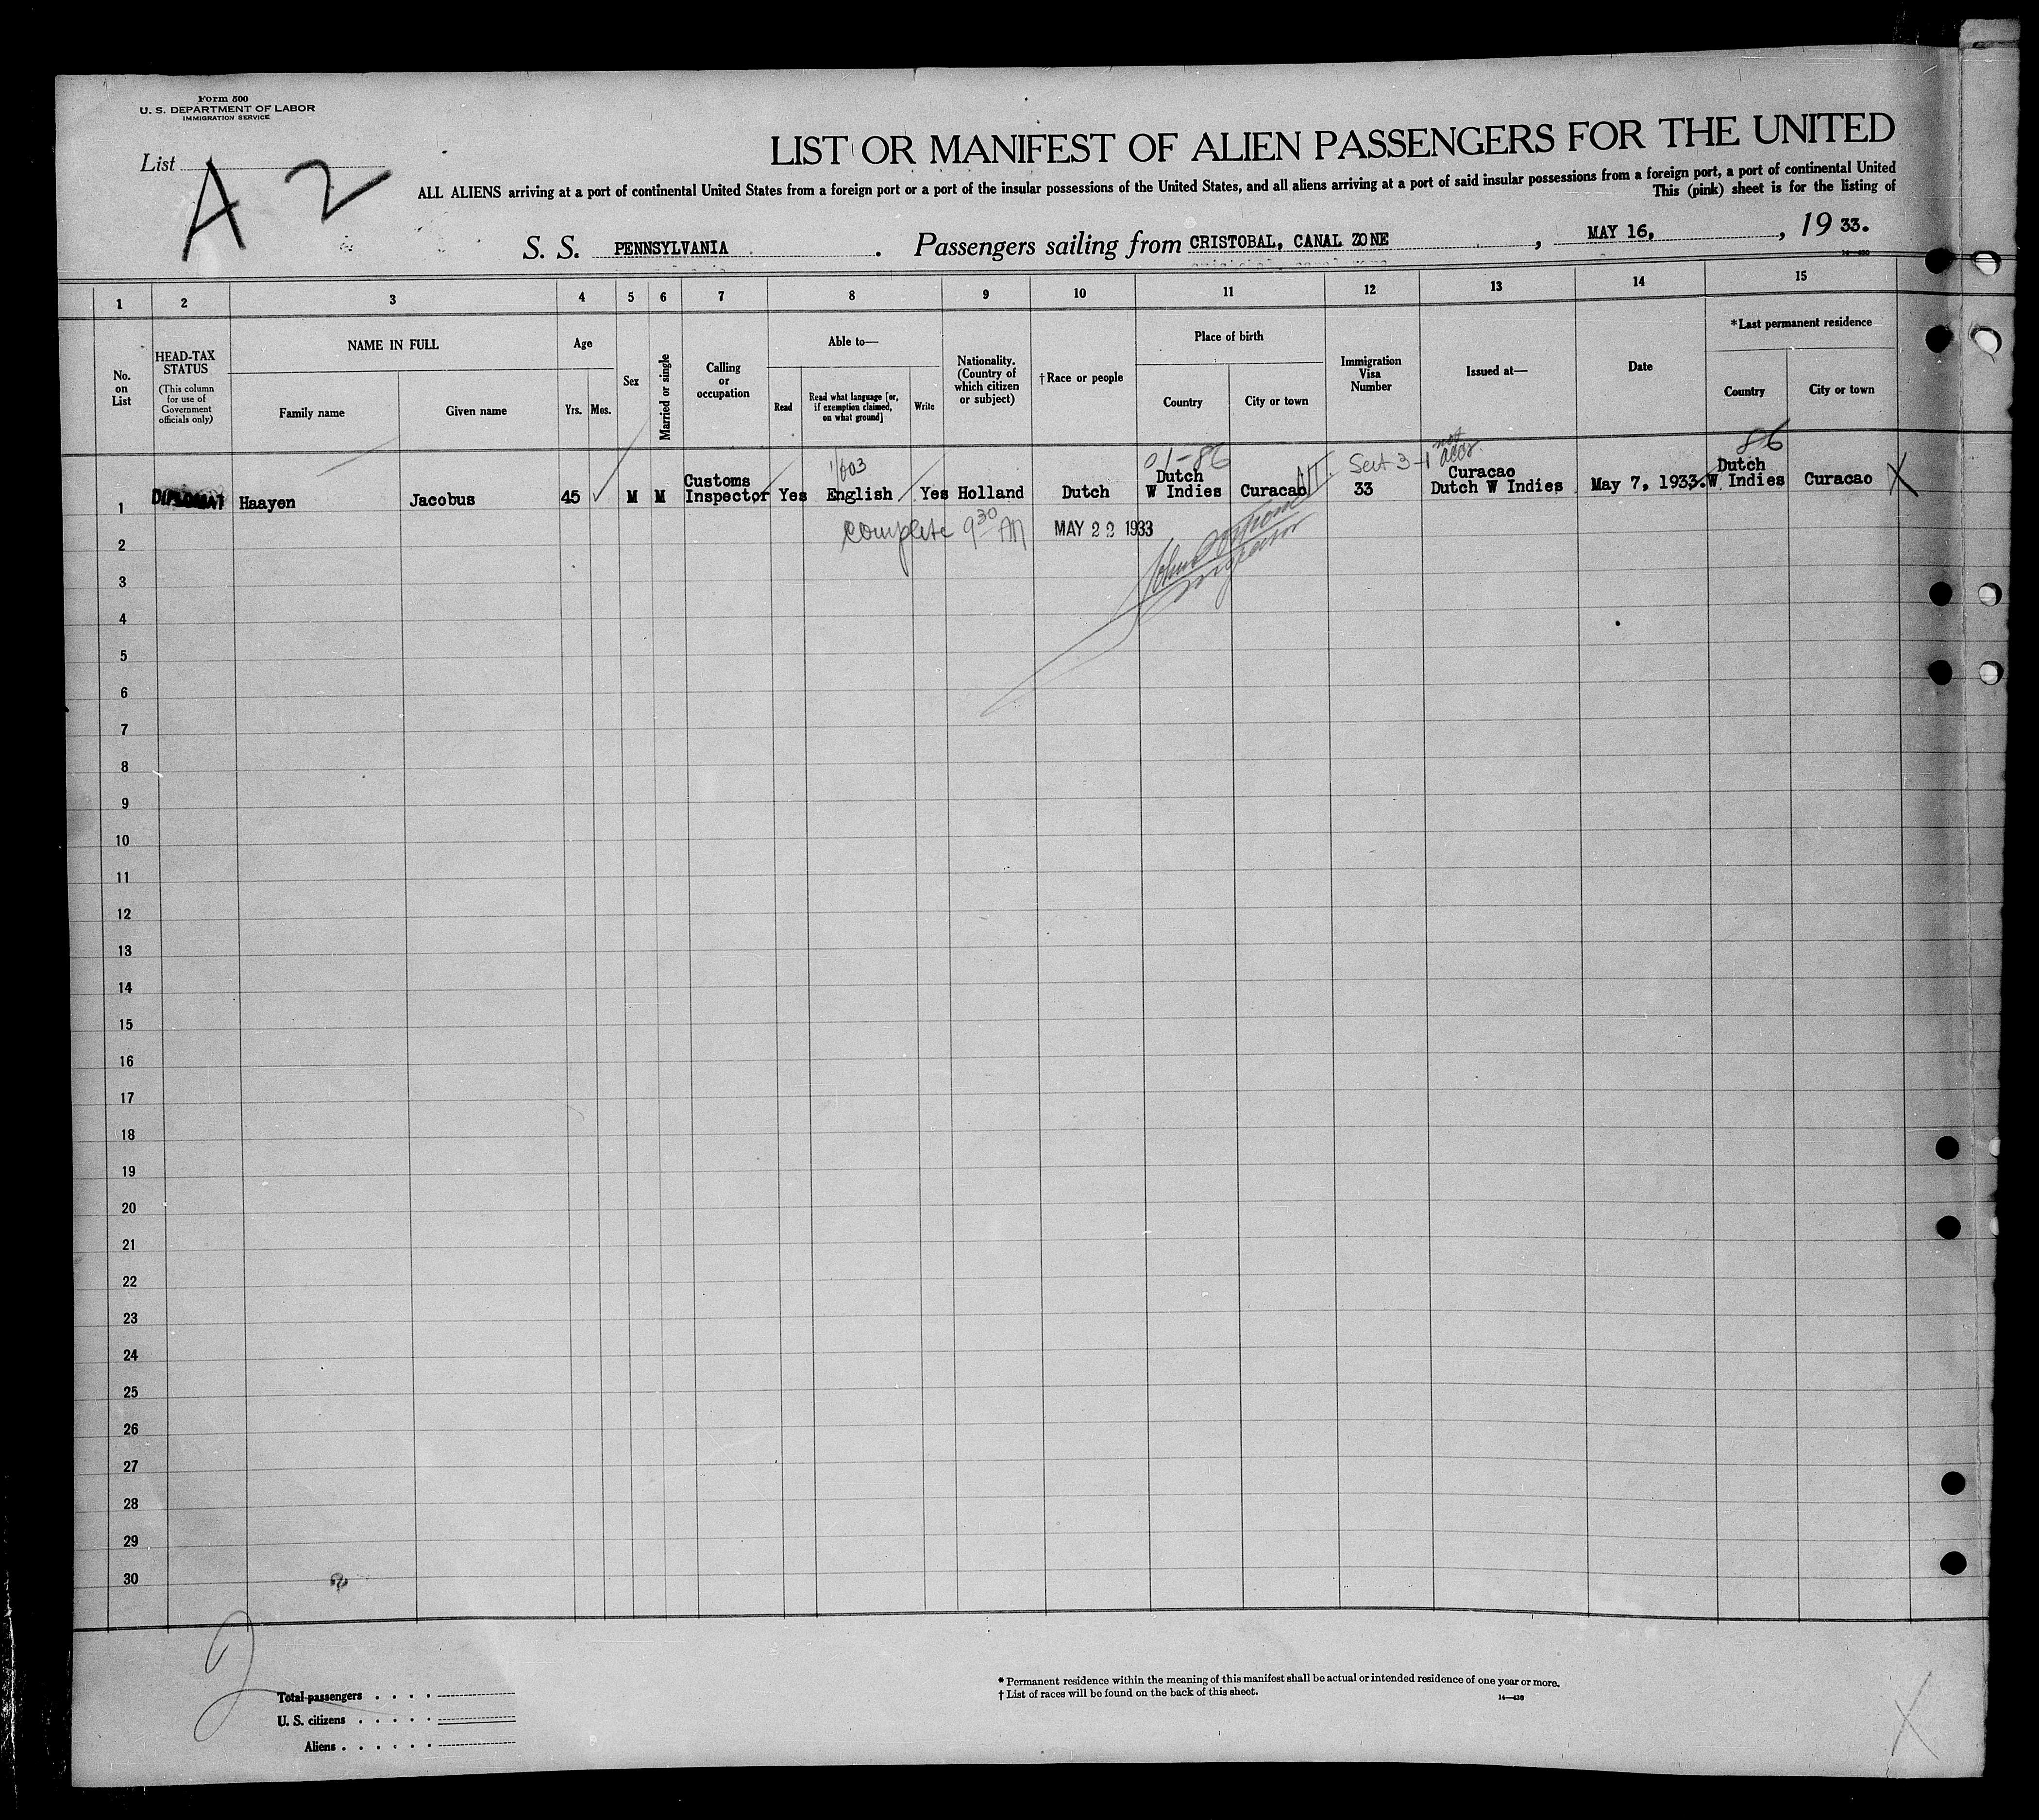 Form 500
U. S. DEPARTMENT OF LABOR
IMMIGRATION SERVICE
List
A 2
LIST OR MANIFEST OF ALIEN PASSENGERS FOR THE UNITED
ALL ALIENS arriving at a port of continental United States from a foreign port or a port of the insular possessions of the United States, and all aliens arriving at a port of said insular possessions from a foreign port, a port of continental United
This (pink) sheet is for the listing of
S. S. PENNSYLVANIA. Passengers sailing from CRISTOBAL, CANAL ZONE, MAY 16, , 19 33.
14—430
1 2 3 4 5 6 7 8 9 10 11 12 13 14 15
No. on List
HEAD-TAX STATUS
(This column for use of Government officials only)
NAME IN FULL
Family name
Given name
Age
Yrs. Mos.
Sex
Married or single
Calling or occupation
Able to—
Read
Read what language [or, if exemption claimed, on what ground]
Write
Nationality. (Country of which citizen or subject)
†Race or people
Place of birth
Country
City or town
Immigration Visa Number
Issued at—
Date
*Last permanent residence
Country
City or town
01-86
Sect 3-1
not
86
1 DIPLOMAT Haayen Jacobus 45 M M Customs Inspector Yes English Yes Holland Dutch Dutch W Indies Curacao 33 Curacao Dutch W Indies May 7, 1933. Dutch W. Indies Curacao X
complete 9 30 AM MAY 22 1933
2
3
4
5
6
7
8
9
10
11
12
13
14
15
16
17
18
19
20
21
22
23
24
25
26
27
28
29
30
2
Total passengers . . . .
U. S. citizens . . . . .
Aliens . . . . . .
* Permanent residence within the meaning of this manifest shall be actual or intended residence of one year or more.
† List of races will be found on the back of this sheet.
14—430
X